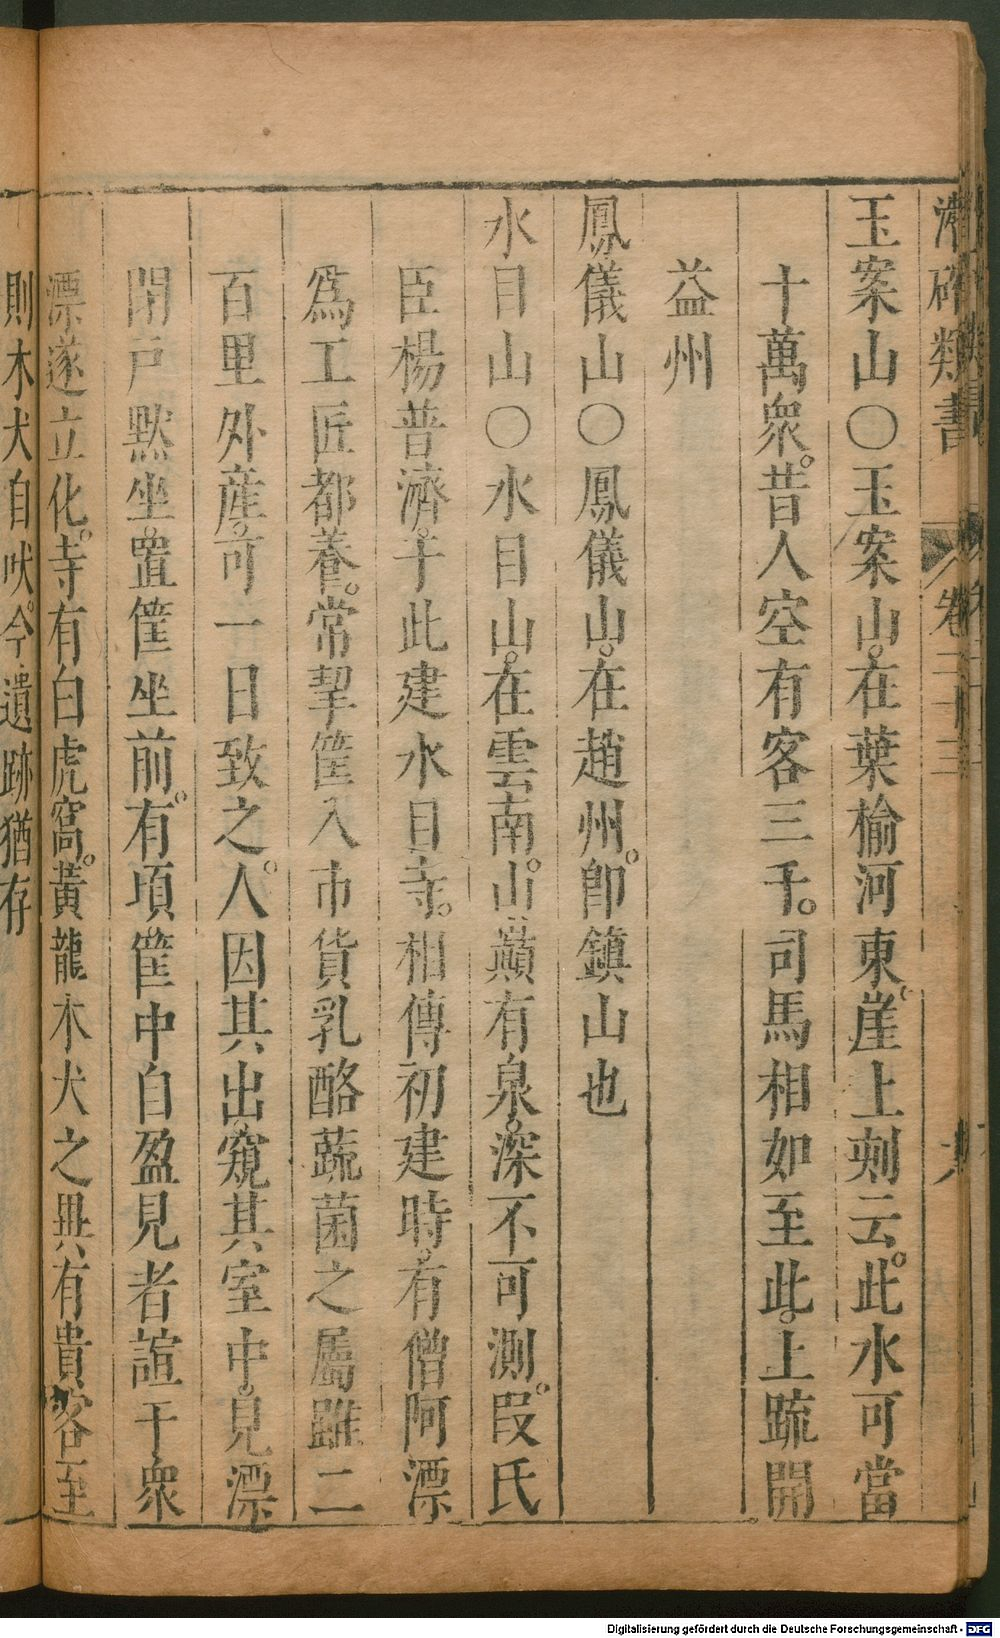 潛確類書 卷二十三
玉案山〇玉案山。在葉榆河東崖。上刻云。此水可當
十萬衆。昔人空有客三千。司馬相如至此。上疏開
益州
鳳儀山〇鳳儀山。在趙州。卽鎮山也
水目山〇水目山。在雲南。山巔有泉。深不可測。段氏
臣楊普濟。于此建水目寺。相傳初建時。有僧阿漂
爲工匠都養。常挈筐入市貨乳酪蔬菌之屬雖二
百里外産。可一日致之。人因其出。窺其室中。見漂
閉戸默坐。置筐坐前。有頃。筐中自盈見者諠于衆
漂遂立化。寺有白虎窩。黃龍木犬之異有貴客至
則木犬自吠。今遺跡猶存
Digitalisierung gefördert durch die Deutsche Forschungsgemeinschaft - DFG